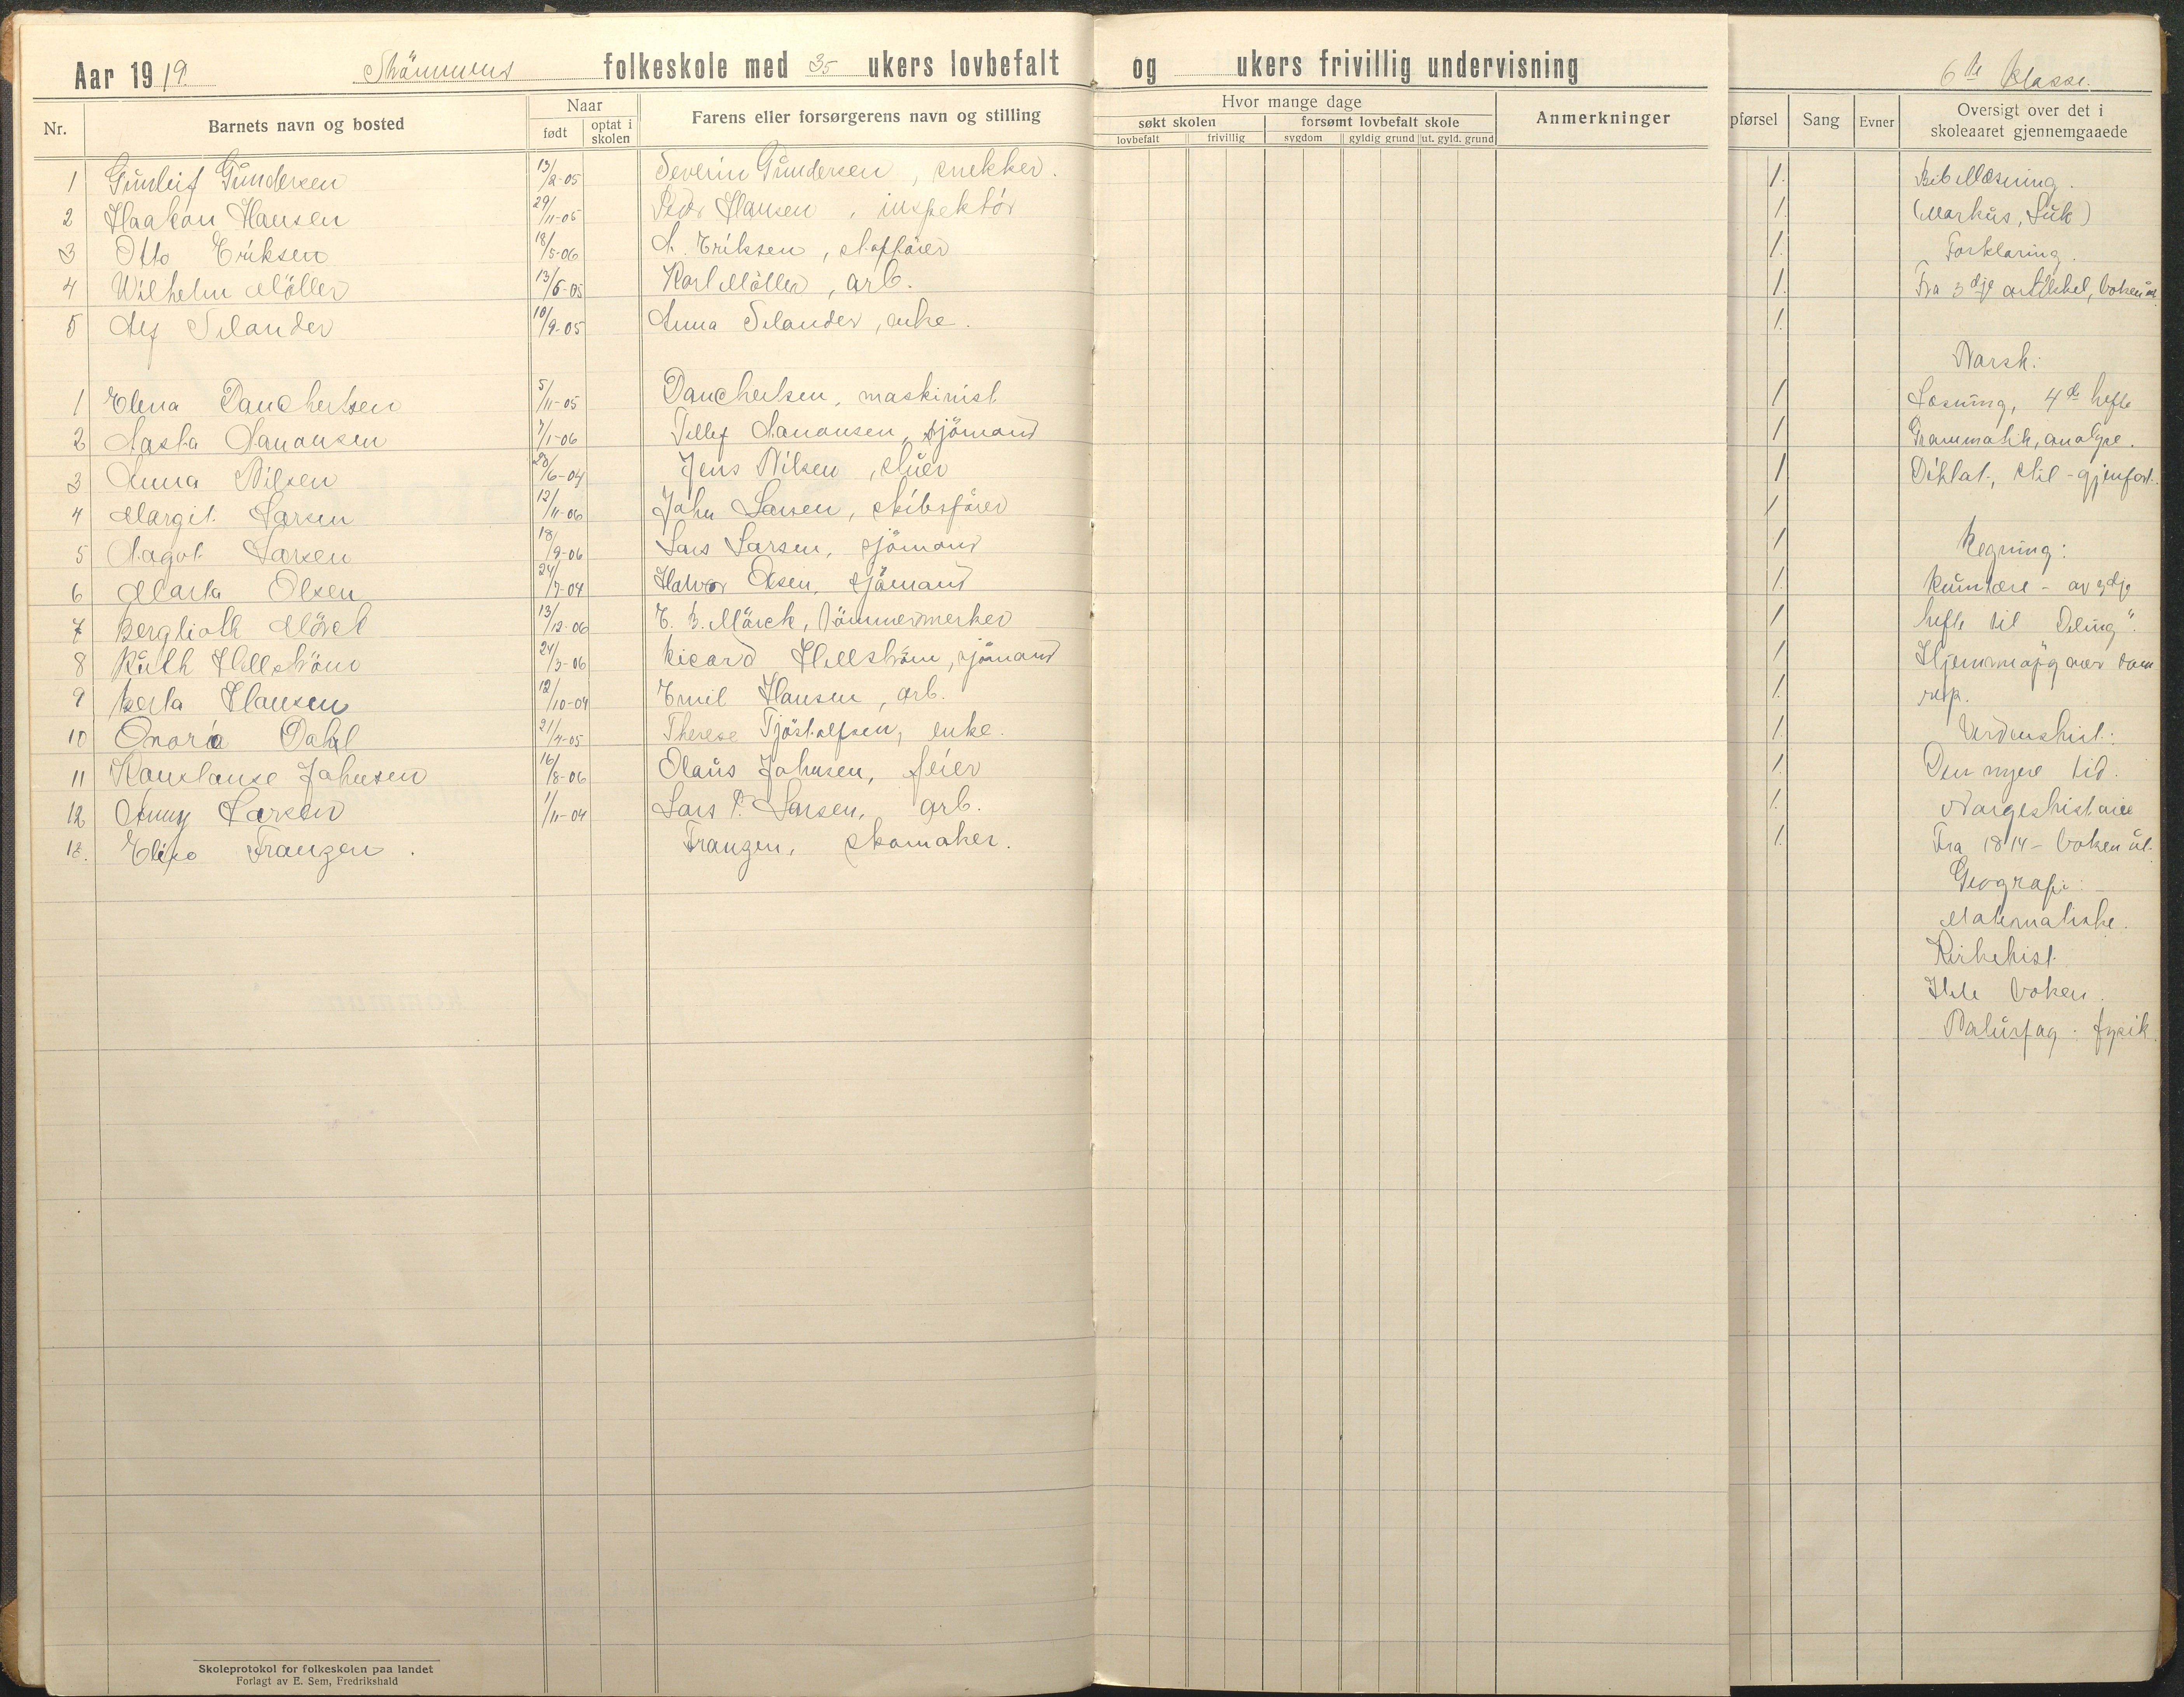 Aar 1919. Strömmens folkeskole med 35 ukers lovbefalt og ukers frivillig undervisning
6te klasse.
Nr. Barnets navn og bosted Naar født optat i skolen Farens eller forsørgerens navn og stilling
Hvor mange dage
søkt skolen forsømt lovbefalt skole
lovbefalt frivillig sygdom gyldig grund ut. gyld. grund
Anmerkninger
pførsel Sang Evner Oversigt over det i skoleaaret gjennemgaaede
1 Gunleif Gundersen 13/2-05 Severin Gundersen, snekker. 1. Bibellæsning.
2 Haakon Hansen 29/11-05 Peder Hansen, inspektör 1. (Markus, Luk)
3 Otto Eriksen 18/5-06 A. Eriksen, 1. Forklaring.
4 Wilhelm Möller 13/6-05 Karl Möller, arb. 1. Fra 3dje artikkel, boken ut.
5 Alf Selander 10/9-05 Anna Selander, enke. 1.
Norsk:
1 Elena Danchertsen 5/11-05 Danchertsen, maskinist 1 Læsning, 4de hefte
2 Aasta Aanonsen 7/1-06 Tellef Aanonsen, sjömand 1 Grammatik, analyse.
3 Anna Nilsen 28/6-04 Jens Nilsen, stuer 1 Diktat, stil - gjenfort.
4 Margit Larsen 12/11-06 John Larsen, skibsförer 1
5 Aagot Larsen 18/9-06 Lars Larsen, sjömand 1 Regning:
6 Marta Olsen 24/7-04 Halvor Olsen, sjömand 1. av 3dje
7 Berglioth Mörck 13/12-06 E. B. Mörck, tömmermerker 1 hefte til Deling".
8 Ruth Hellström 24/3-06 Ricard Hellström, sjömand 1
9 Berta Hansen 12/10-04 Emil Hansen, arb. 1.
10 Onora Dahl 21/4-05 Therese Tjöstolfsen, enke. 1. Verdenshist.:
11 Konstanse Johnsen 16/8-06 Olaus Johnsen, feier 1. Den nyere tid.
12 Anny Larsen 1/11-04 Lars P. Larsen, arb. 1. Norgeshistorie
13. Elise Franzen. Franzen, skomaker. 1. Fra 1814 - boken ut.
Geografi:
Matematiske.
Kirkehist.
Hele boken.
Naturfag: fysik.
Skoleprotokol for folkeskolen paa landet
Forlagt av E. Sem, Fredrikshald